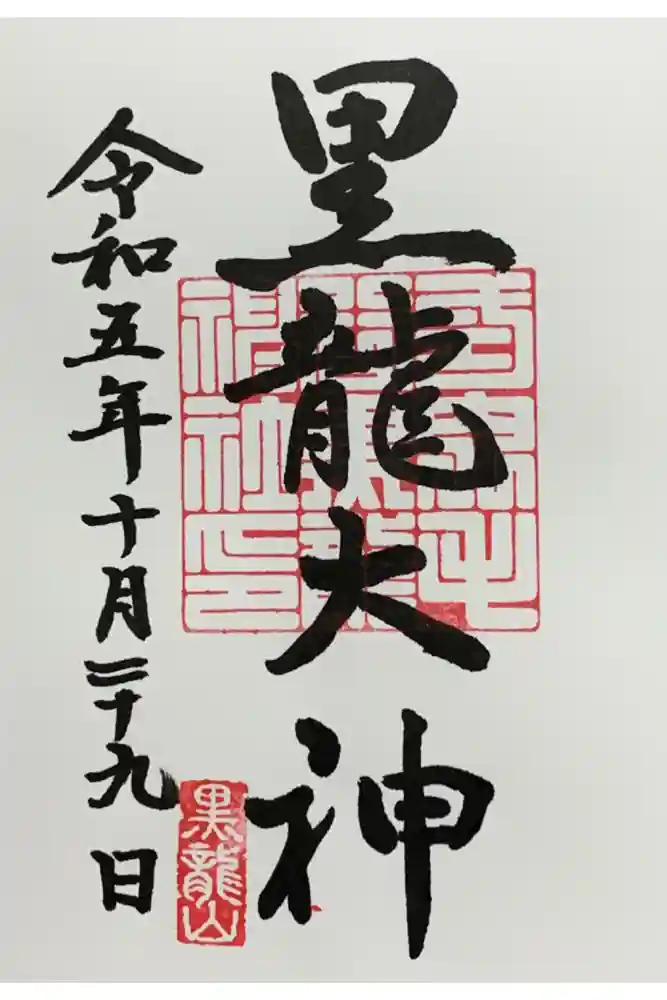 黒龍大神
令和五年十月二十九日
黒龍山
神社印